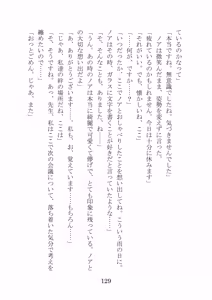 ているのかなって」
「本当ですね。無意識でしたね、気づきませんでした」
ノアは微笑んだまま、姿勢を変えずに言った。
「疲れているのかもしれません。今日は十分に休みます」
「それがいい。でも、懐かしいね、ここ」
「……何が、ですか?」
「いつだったか、ここでノアとおしゃべりしたことを想い出してね。こういう雨の日に。
ノアはその時、ガラスに文字を書くことが好きだと言っていたっけ」
「そ、そんなことも、ありましたね、ね……」
「うん、あの時のノアは本当に綺麗で可愛くて儚げで、とても印象に残っている。ノアと
の大切な思い出だよ」
「あ、ありがとうございます……。私も、覚えています……もちろん……」
「じゃあ、私達の絆の場所だね、ここは」
「そ、そうですね。あっ、先生、私はここで次の会議について、落ち着いた気分で考えを
纏めたいので……」
「おっとごめん、じゃあ、また」
129